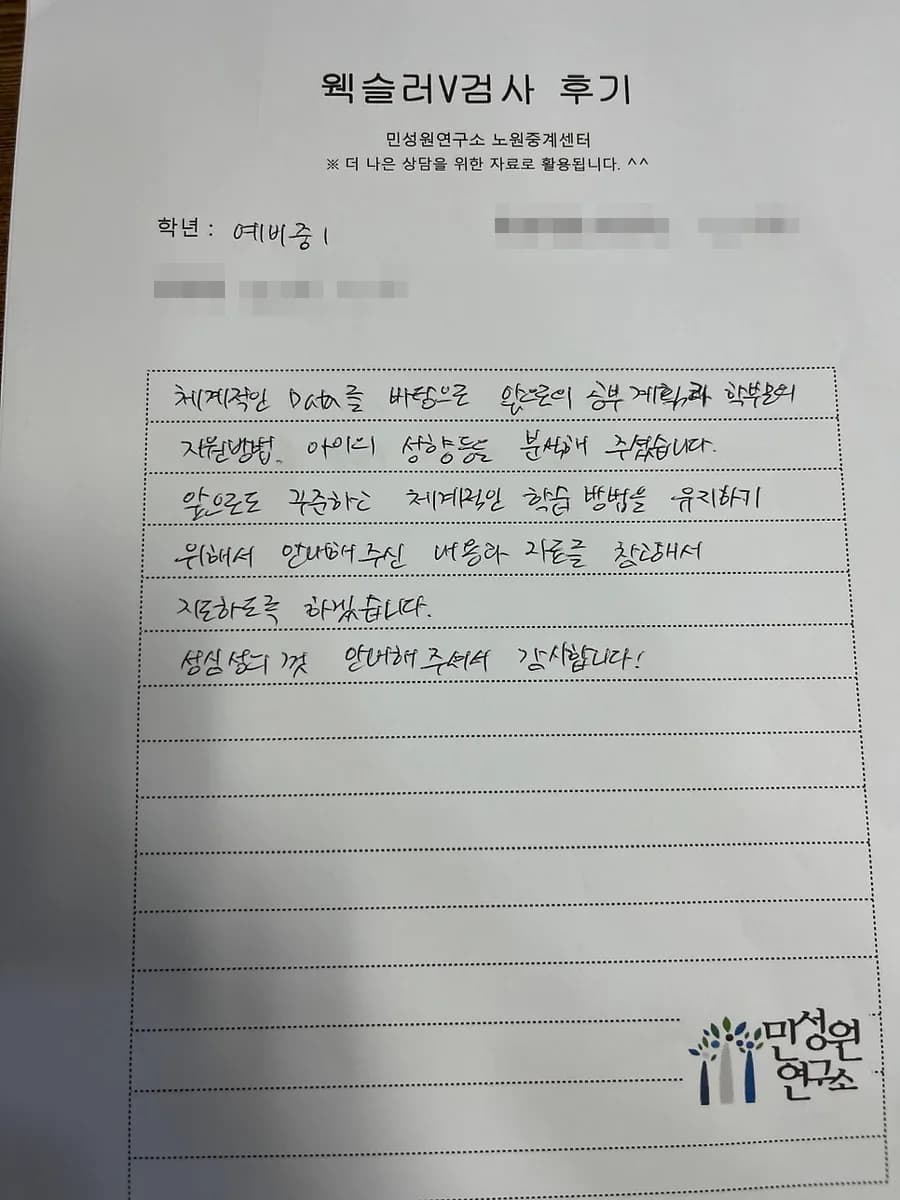 웩슬러V검사 후기
민성원연구소 노원중계센터
※ 더 나은 상담을 위한 자료로 활용됩니다. ^^
학년 : 예비중1
체계적인 Data를 바탕으로 앞으로의 공부 계획과 학부모의
지원방법, 아이의 성향등을 분석해 주셨습니다.
앞으로도 꾸준하고 체계적인 학습 방법을 유지하기
위해서 안내해 주신 내용과 자료를 참고해서
지도하도록 하겠습니다.
성심성의 껏 안내해 주셔서 감사합니다!
민성원
연구소